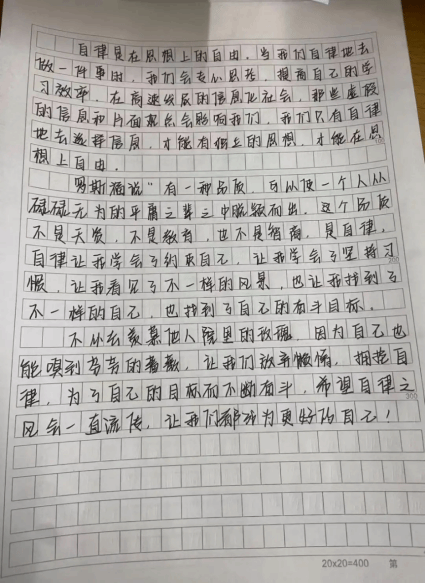 自律是在思想上的自由，当我们自律地去
做一件事时，我们会专心思考，提高自己的学
习效率。在高速发展的信息化社会，那些虚假
的信息和片面观点会影响我们，我们只有自律
地去选择信息，才能有向上的思想，才能在思
想上自由。
罗斯福说"有一种品质，可以使一个人从
碌碌无为的平庸之辈之中脱颖而出，这个品质
不是天资，不是教育，也不是智商，是自律，
自律让我学会了约束自己，让我学会了坚持习
惯，让我看见了不一样的风景，也让我找到了
不一样的自己，也找到了自己的奋斗目标。
不必去羡慕他人院里的玫瑰，因为自己也
能嗅到芬芳的蔷薇，让我们放弃懒惰，拥抱自
律，为了自己的目标而不断奋斗，希望自律之
风会一直流传，让我们都成为更好的自己！
300
20x20=400 第